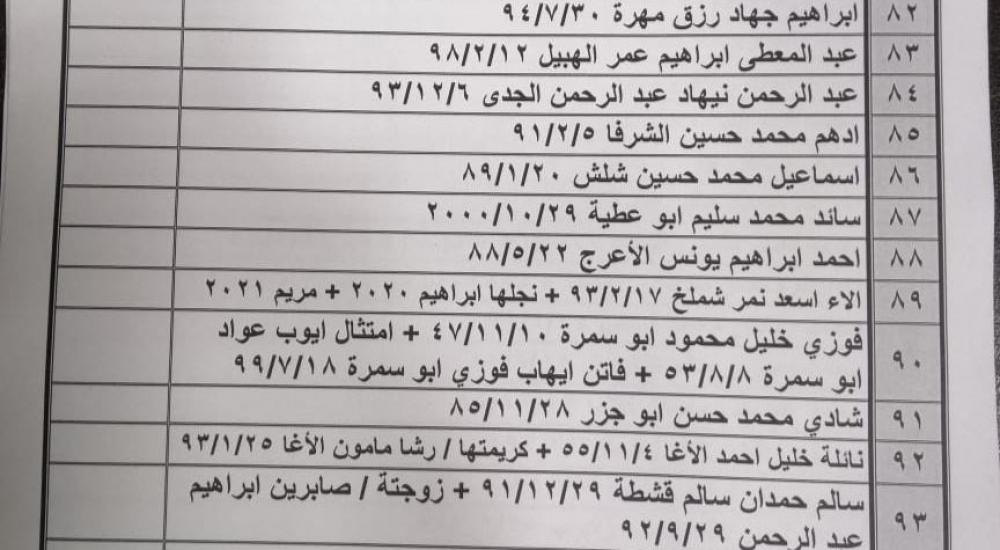 ٨٢ ابراهيم جهاد رزق مهرة ٩٤/٧/٣٠
٨٣ عبد المعطى ابراهيم عمر الهبيل ٩٨/٢/١٢
٨٤ عبد الرحمن نيهاد عبد الرحمن الجدى ٩٣/١٢/٦
٨٥ ادهم محمد حسين الشرفا ٩١/٢/٥
٨٦ اسماعيل محمد حسين شلش ٨٩/١/٢٠
٨٧ سائد محمد سليم ابو عطية ٢٠٠٠/١٠/٢٩
٨٨ احمد ابراهيم يونس الأعرج ٨٨/٥/٢٢
٨٩ الاء اسعد نمر شملخ ٩٣/٢/١٧ + نجلها ابراهيم ٢٠٢٠ + مريم ٢٠٢١
٩٠ فوزي خليل محمود ابو سمرة ٤٧/١١/١٠ + امتثال ايوب عواد
ابو سمرة ٥٣/٨/٨ + فاتن ايهاب فوزي ابو سمرة ٩٩/٧/١٨
٩١ شادي محمد حسن ابو جزر ٨٥/١١/٢٨
٩٢ نائلة خليل احمد الأغا ٥٥/١١/٤ + كريمتها / رشا مامون الأغا ٩٣/١/٢٥
٩٣ سالم حمدان سالم قشطة ٩١/١٢/٢٩ + زوجتة / صابرين ابراهيم
عبد الرحمن ٩٢/٩/٢٩